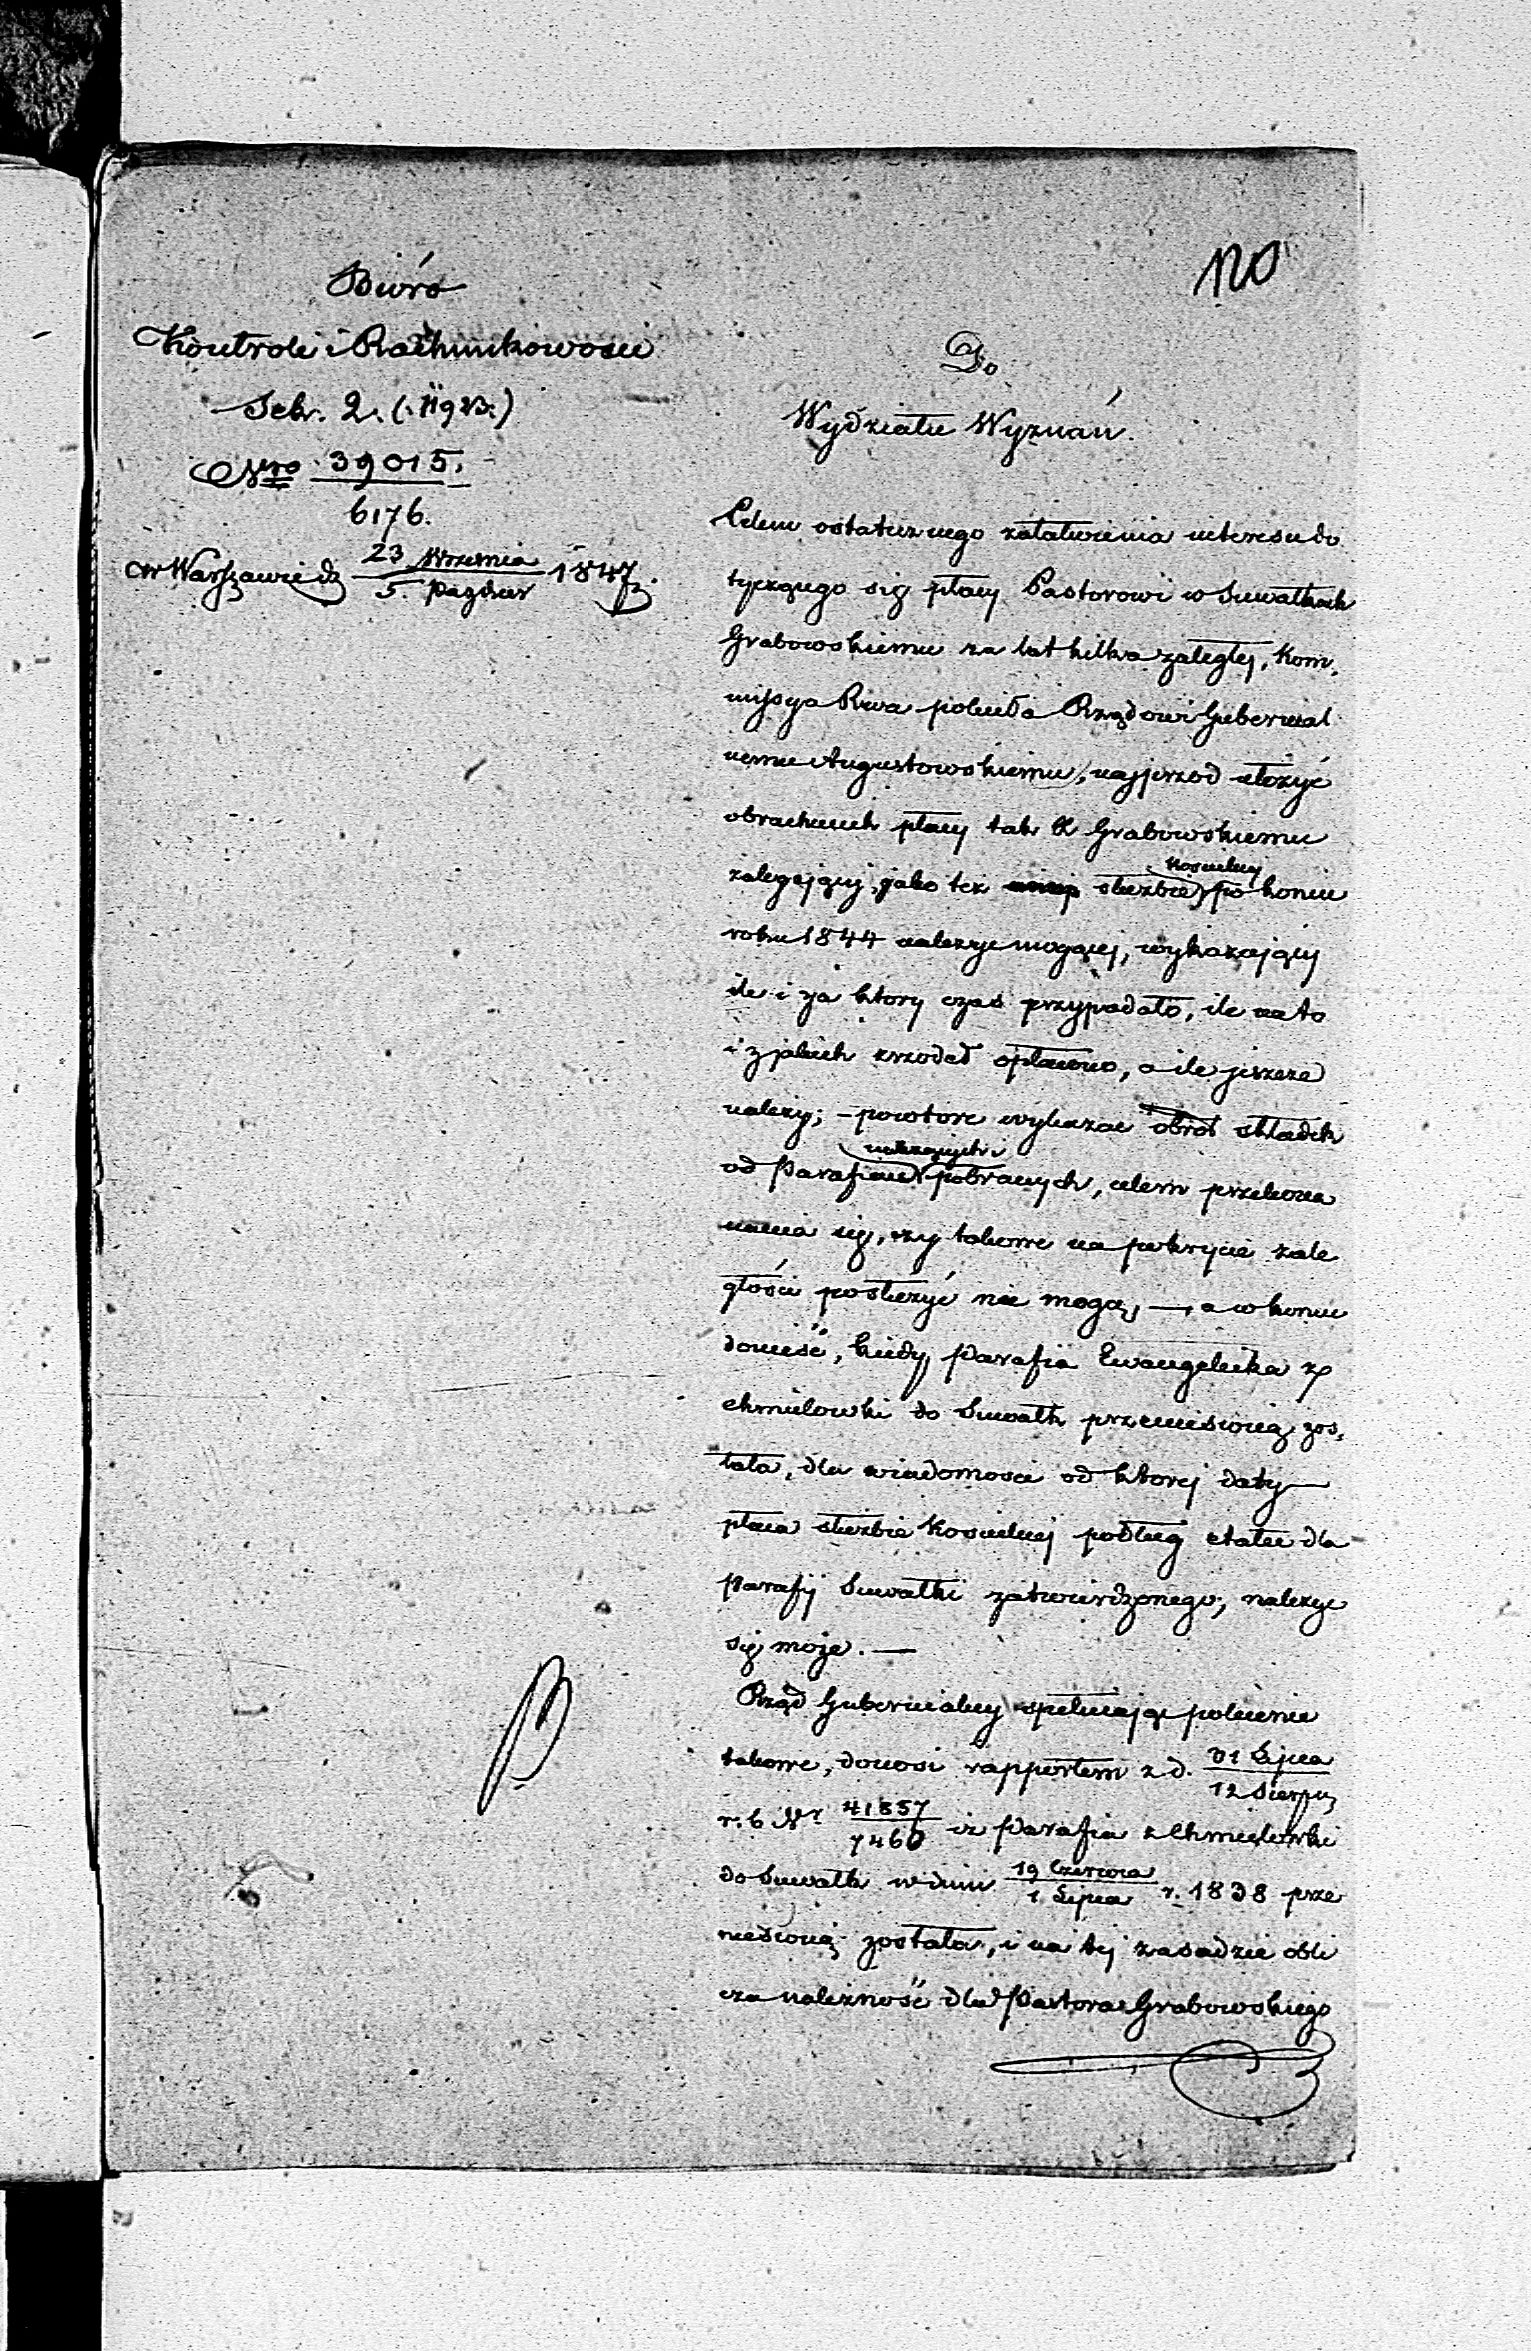 120
Biuro
Kontroli i Rachunkowości
Sek. 2.
Nro 39015.
6176.
w Warszawie d. 23 Września
5. Paździer 1847
Do
Wydziału Wyznań.
Celem ostatecznego załatwienia interesu do
tyczącego się płacy Pastorowi w Suwałkach
Grabowskiemu za lat kilka zaległej, Kom,
missya Rwa poleciła Rządowi Gubernial
nemu Augustowskiemu, najprzod ułożyć
obrachunek płacy tak X Grabowskiemu
zalegającej, jako też służbie Kościelney po koniec
roku 1844 należyć mogącej, wykazający
ile i za ktory czas przypadało, ile na to
i z jakich zrzodeł opłacono, a ile jeszcze
należy; – powtore wykazać obrot składek
od Parafian pobranych, celem przekona
nania się, czy takowe na pokrycie zale
głości posłużyć nie mogą, — a w koncu
donieść, kiedy Parafia Ewangelicka z
Chmielowki do Suwałk przeniesioną zos,
tała, dla wiadomosci od ktorej daty
płaca służbie Koscielnej podług etatu dla
Parafij Suwałki zatwierdzonego, należyc
się może. —
Rząd Gubernialny spełniając polecenie
takowe, donosi rapportem z d. 31 Lipca
12 Sierpn
r. b Nr 41857
7460 iż Parafia z Chmielowki
do Suwałk w dniu 19 Czerwca
1 Lipca r. 1838 prze
niesioną została, i na tej zasadzie obli
cza należność dla Pastora Grabowskiego